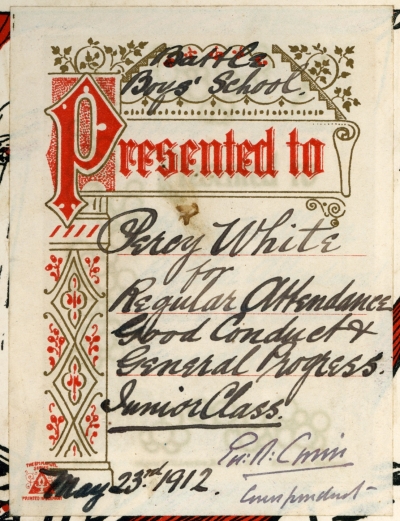 Battle
Boys' School.
Presented to
Percy White
for
Regular Attendance
Good Conduct &
General Progress.
Junior Class.
May 23rd 1912.
Correspondent